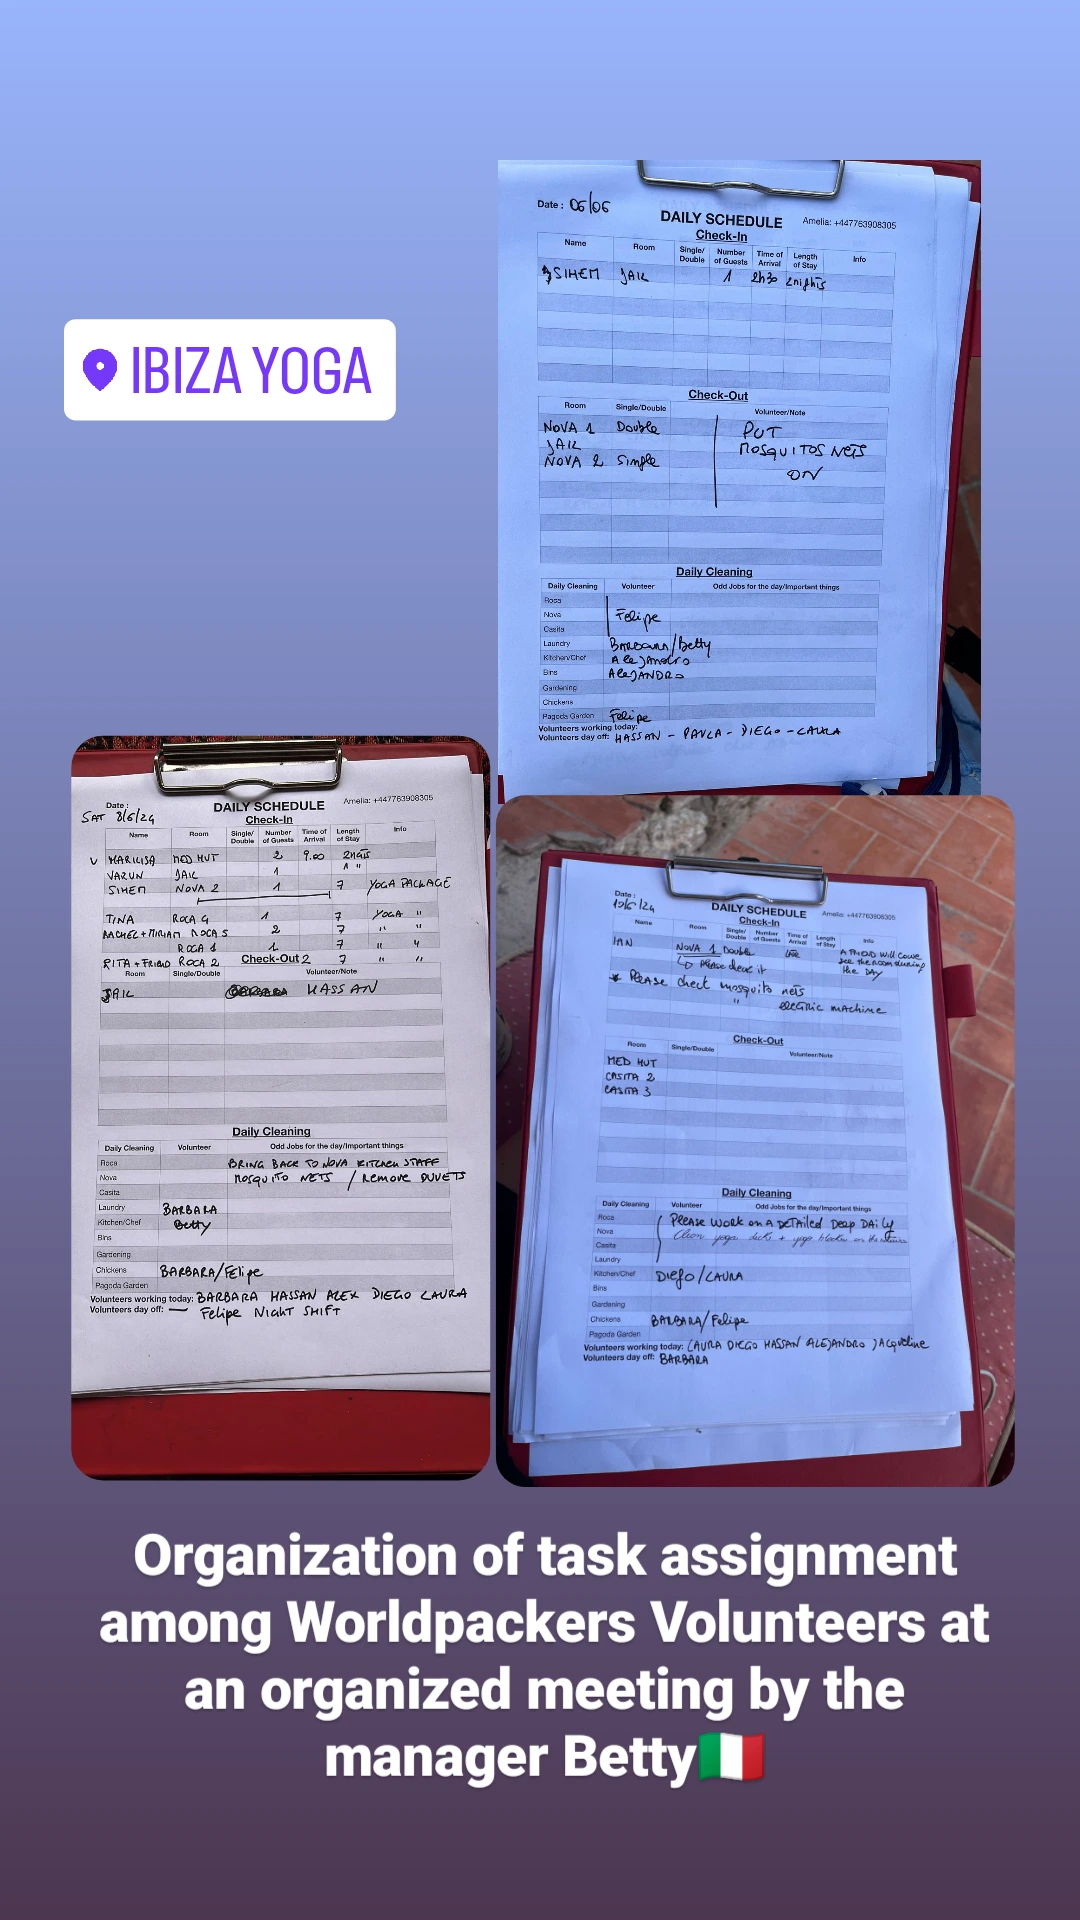 IBIZA YOGA
Date : 06/06
DAILY SCHEDULE
Amelia: +447763908305
Check-In
Name Room Single/Double Number of Guests Time of Arrival Length of Stay Info
SIHEM JAIL 1 2h30 2nights
Check-Out
Room Single/Double Volunteer/Note
NOVA 1 Double PUT
JAIL MOSQUITOS NETS
NOVA 2 Simple ON
Daily Cleaning
Daily Cleaning Volunteer Odd Jobs for the day/Important things
Roca
Nova Felipe
Casita
Laundry BARBARA/Betty
Kitchen/Chef AleJANDRO
Bins AleJANDRO
Gardening
Chickens
Pagoda Garden Felipe
Volunteers working today:
Volunteers day off: HASSAN - PAULA - DIEGO - LAURA
Date :
SAT 8/6/24
DAILY SCHEDULE
Amelia: +447763908305
Check-In
Name Room Single/Double Number of Guests Time of Arrival Length of Stay Info
V MARILISA MED HUT 2 9.00 2NGTS
VARUN JAIL 1 1 "
SIHEM NOVA 2 1 7 YOGA PACKAGE
TINA ROCA 4 1 7 YOGA "
RACHEL + MIRIAM ROCA 5 2 7 " "
ROCA 1 1 7 " "
RITA + FRIEND ROCA 2 2 7 " "
Check-Out
Room Single/Double Volunteer/Note
JAIL BARBARA HASSAN
Daily Cleaning
Daily Cleaning Volunteer Odd Jobs for the day/Important things
Roca BRING BACK TO NOVA KITCHEN STAFF
Nova MOSQUITO NETS / Remove DUVETS
Casita
Laundry BARBARA
Kitchen/Chef Betty
Bins
Gardening
Chickens BARBARA/Felipe
Pagoda Garden
Volunteers working today: BARBARA HASSAN ALEX DIEGO LAURA
Volunteers day off: — Felipe NIGHT SHIFT
Date :
DAILY SCHEDULE
Amelia: +447763908305
Check-In
Name Room Single/Double Number of Guests Time of Arrival Length of Stay Info
IAN NOVA 1 Double late A FRIEND WILL COME
Please check it see the room during
the DAY
* Please check mosquito nets
" electric machine
Check-Out
Room Single/Double Volunteer/Note
MED HUT
CASITA 2
CASITA 3
Daily Cleaning
Daily Cleaning Volunteer Odd Jobs for the day/Important things
Roca Please work on a DETAILED Deep DAily
Nova Clean yoga decks + yoga blocks on the
Casita
Laundry
Kitchen/Chef Diego/LAURA
Bins
Gardening
Chickens BARBARA/Felipe
Pagoda Garden
Volunteers working today: LAURA DIEGO HASSAN ALEJANDRO JACQueline
Volunteers day off: BARBARA
Organization of task assignment
among Worldpackers Volunteers at
an organized meeting by the
manager Betty🇮🇹